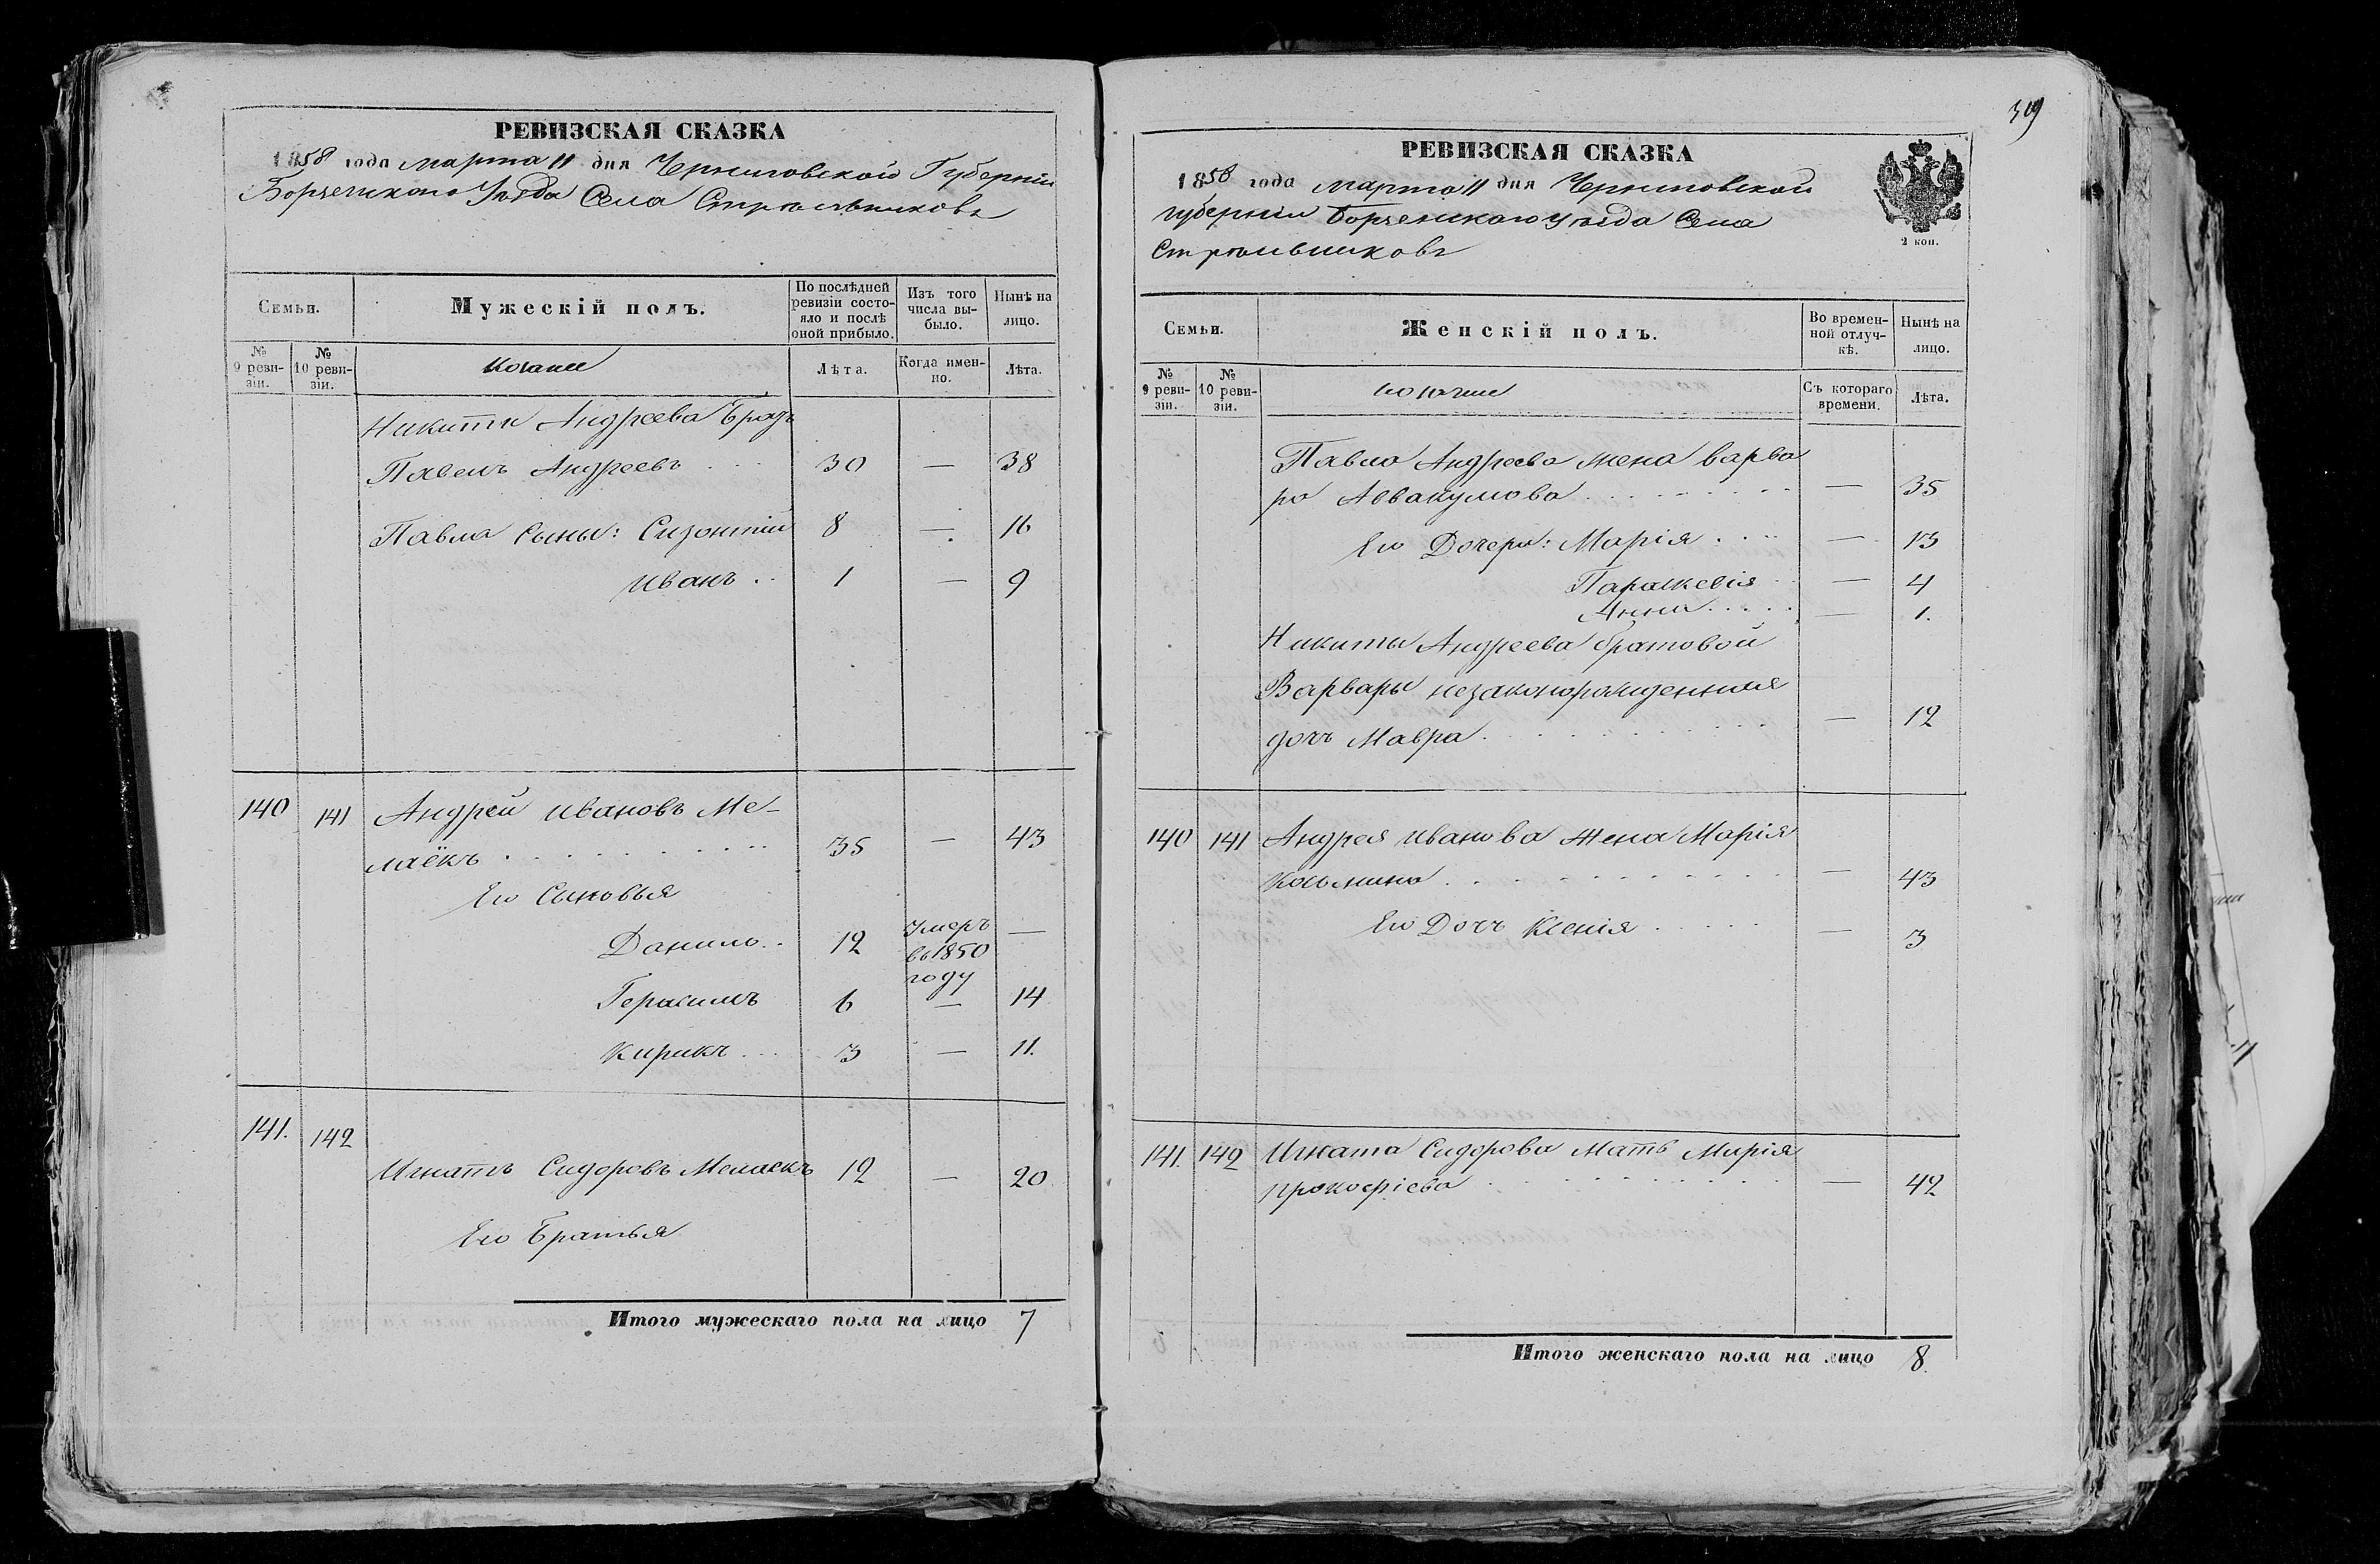 РЕВИЗСКАЯ СКАЗКА
1858 года марта 11 дня Черниговской Губерніи
Борзенскаго Уѣзда Села Стрѣльниковъ
Семьи.
Мужескій полъ.
По послѣдней ревизіи состояло и послѣ оной прибыло.
Изъ того числа выбыло.
Нынѣ на лицо.
№ 9 ревизіи.
№ 10 ревизіи.
Козачье
Лѣта.
Когда именно.
Лѣта.
Никиты Андреева Братъ
Павелъ Андреевъ . . . 30 — 38
Павла Сыны: Сизонтій 8 — 16
Иванъ . . 1 — 9
140 141 Андрей Ивановъ Ме-
лаёкъ . . . 35 — 43
Его Сыновья
Данило . . 12 Умеръ —
въ 1850
году
Герасимъ 6 — 14
Кирикъ . . . 3 — 11.
141. 142
Игнатъ Сидоровъ Мелаекъ 12 — 20
Его Братья
Итого мужескаго пола на лицо 7
39
РЕВИЗСКАЯ СКАЗКА
1858 года марта 11 дня Черниговской
губерніи Борзенскаго Уѣзда Села
Стрѣльниковъ
2 коп.
Семьи.
Женскій полъ.
Во временной отлучкѣ.
Нынѣ на лицо.
№ 9 ревизіи.
№ 10 ревизіи.
козачье
Съ котораго времени.
Лѣта.
Павла Андреева жена Варва
ра Аввакумова . . . — 35
Его Дочери: Марія . . . — 13
Параскевія — 4
Анна . . . . — 1.
Никиты Андреева братовой
Варвары незаконорожденная
дочъ Мавра . . . — 12
140 141 Андрея Иванова Жена Марія
Козьмина . . . — 43
Его Дочъ Ксенія . . . — 3
141. 142 Игната Сидорова Мать Марія
Прокофіева . . . — 42
Итого женскаго пола на лицо 8.